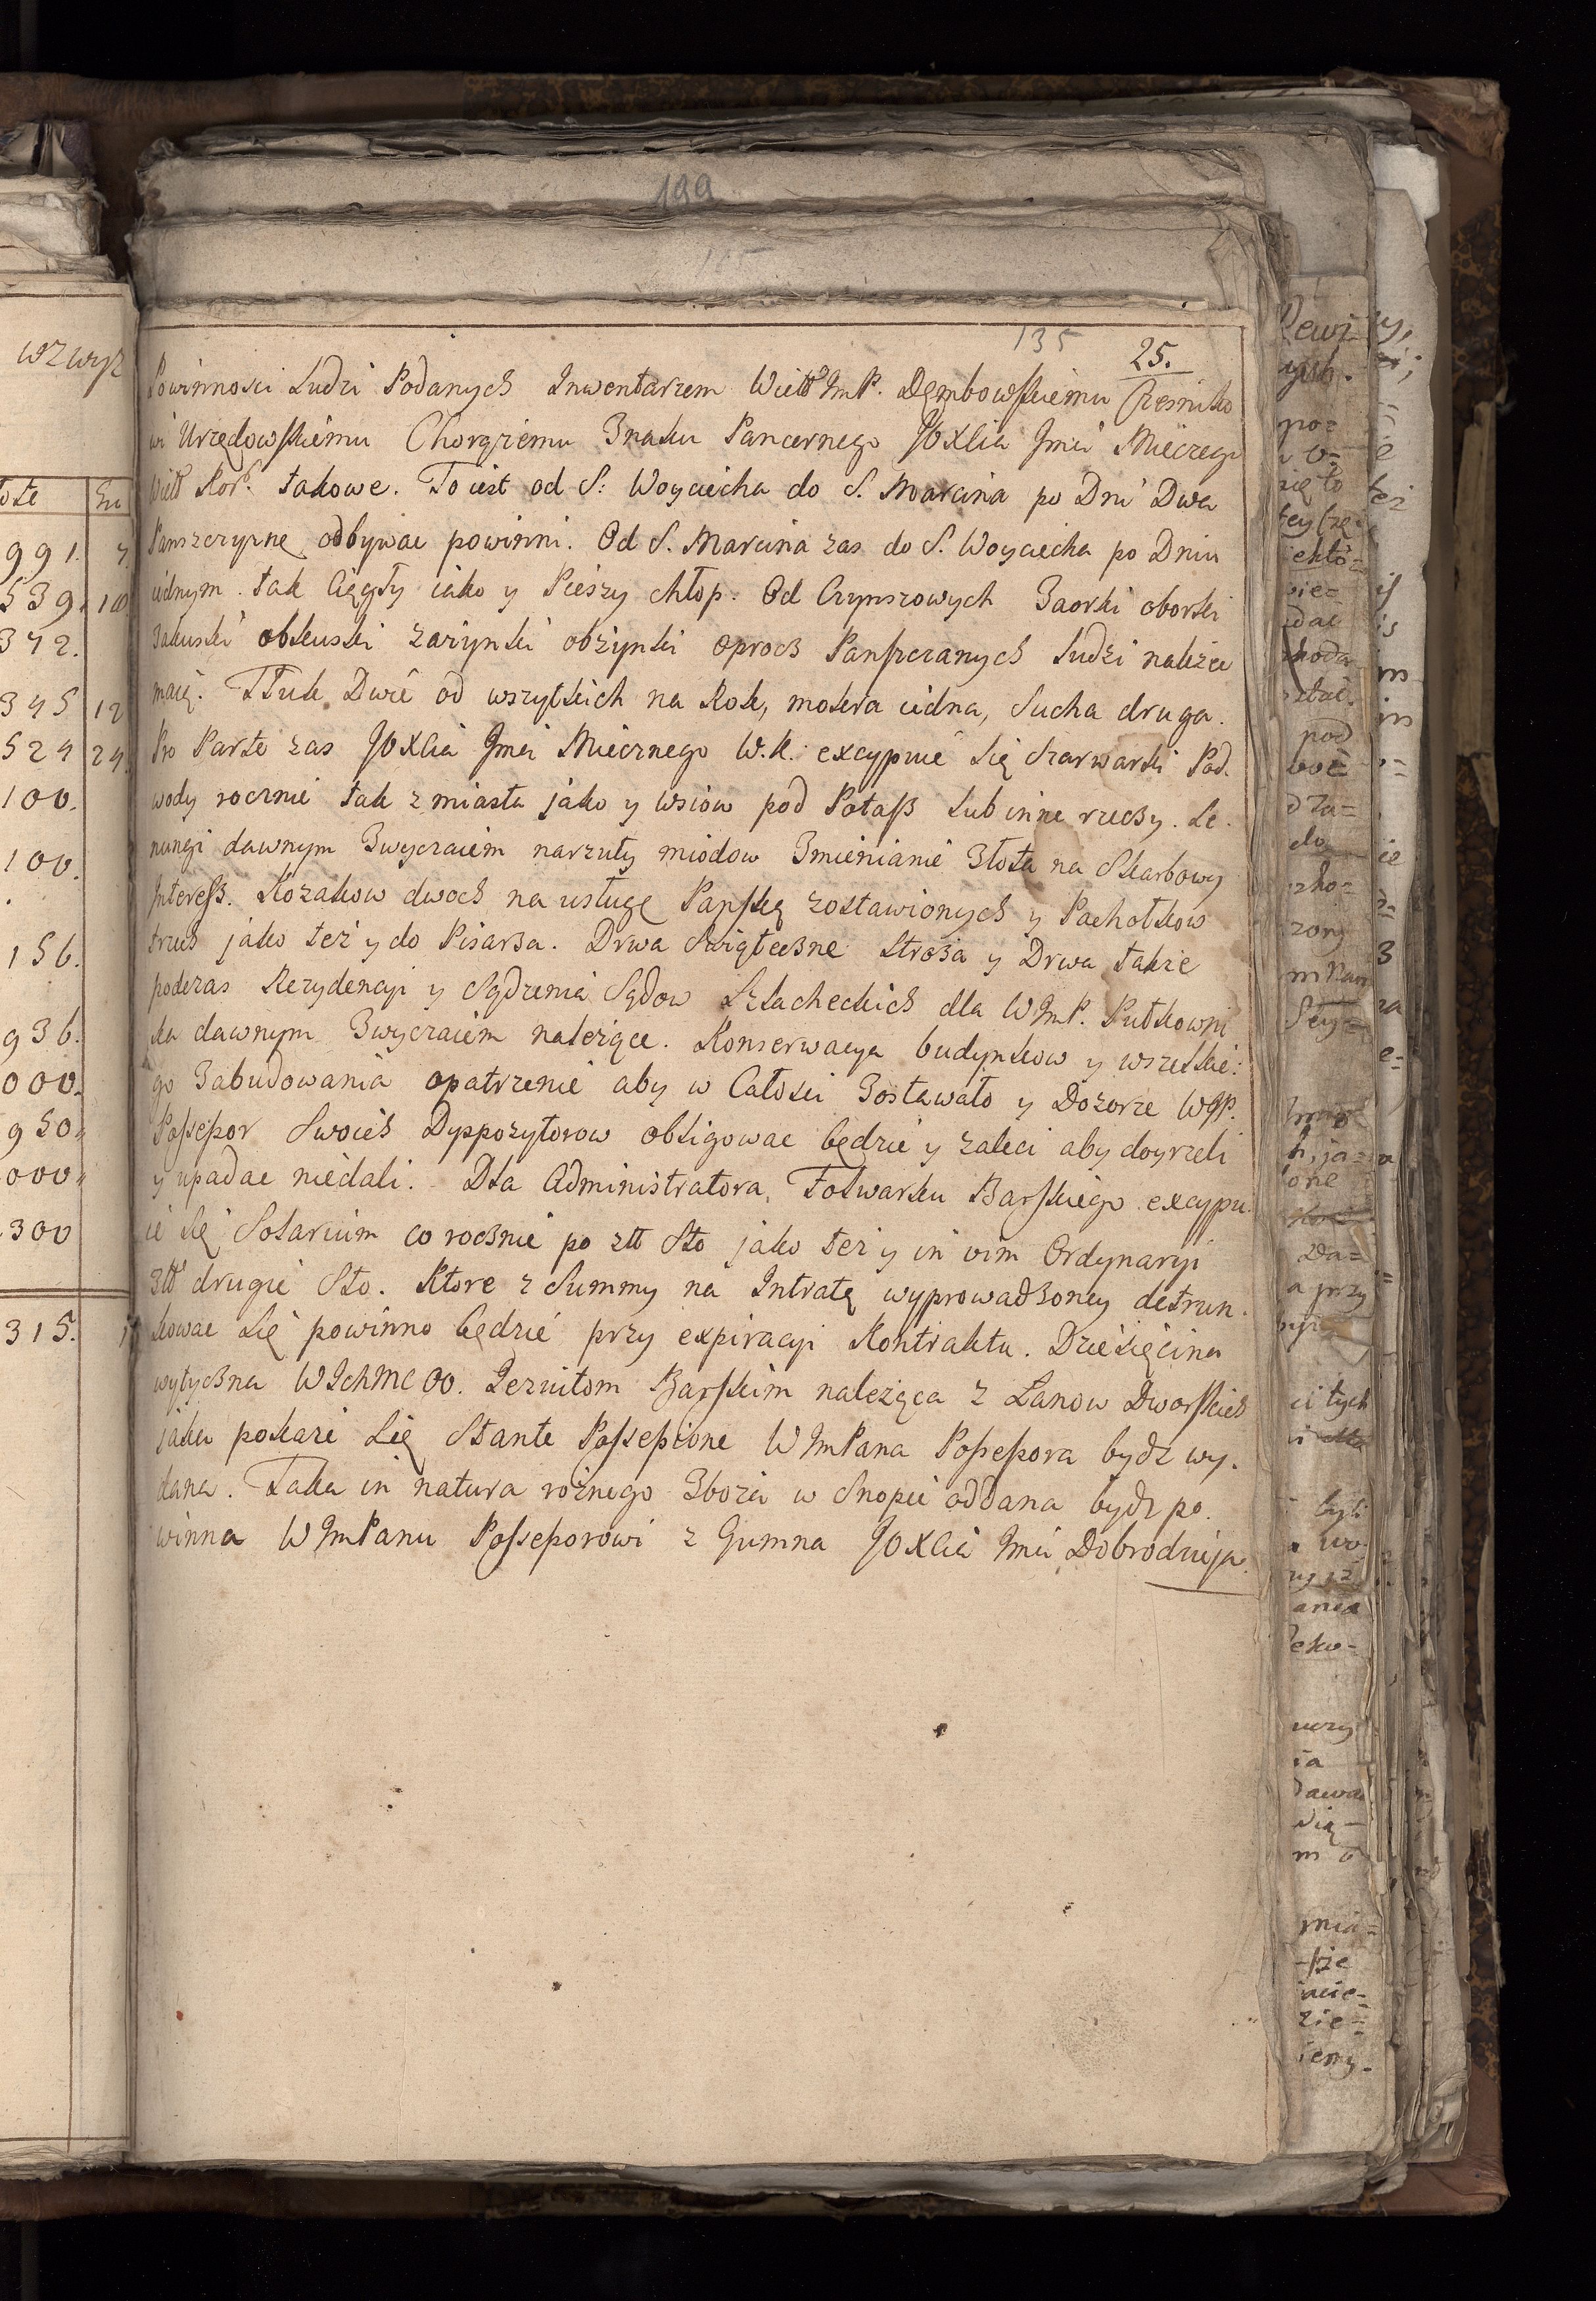 199
135 25.
Powinnosci Ludzi Podanych Inwentarzem Wielo ImP. Dęmbowskiemu Czesniko
wi Urzędowskiemu Chorążiemu Znaku Pancernego JOXcia Jmci Mieczneg
Wiell Kor: takowe. To iest od S: Woyciecha do S. Marcina po Dni Dwa
Panszczyznę odbywac powinni. Od S. Marcina zas do S. Woyciecha po Dniu
iednym. tak Ciągły iako y Pieszy chłop. Od Czynszowych Zaorki oborki
Zakuski obkuski zazynki obzynki oprocz Panszczanych ludzi nalezec
maią. Tłuk Dwie od wszytkich na Rok, mokra iedna, Sucha druga.
Pro Parte zas JOXcia Jmci Miecznego W.K. excypuie się Szarwarki Pod.
wody rocznie tak z miasta jako y wsiow pod Potasz lub inne rzeczy. Le.
nungi dawnym Zwyczaiem narzuty miodow Zmienianie Złota na Skarbowy
Interess. Kozakow dwoch na usługę Pańską zostawionych y Pachołkow
trzech jako też y do Pisarza. Drwa Swiąteczne Stroza y Drwa takze
podczas Rezydencyi y Sądzenia Sądow Szlacheckich dla WJmP. Pułkowni
ka dawnym Zwyczaiem nalezące. Konserwacya budynkow y wszelkie:
go Zabudowania opatrzenie aby w Całosci Zostawało y Dozorze WJP.
Possessor Swoich Dyspozytorow obligowac będzie y zaleci aby doyrzeli
y upadac niedali. Dla Administratora Folwarku Barskiego excypu
ie się Solarium co rocznie po złł Sto jako też y in vim Ordynaryi
Złł drugie Sto. Ktore z Summy na Intratę wyprowadzoney detrun.
kowac się powinno będzie przy expiracyi Kontraktu. Dziesięcina
wytyczna WJchMC OO. Jezuitom Barskim naleząca z Łanow Dworskich
jaka pokaze się Stante Possessione WJmPana Possessora bydz wy.
dana. Taka in natura roznego Zboza w Snopie oddana bydz po.
winna WJmPanu Possessorowi z Gumna JOXcia Jmci Dobrodzieja.
wzwyz
991.
539. 10
372.
345 12
524 24.
100.
100.
156.
936.
000.
950
000
300
315.